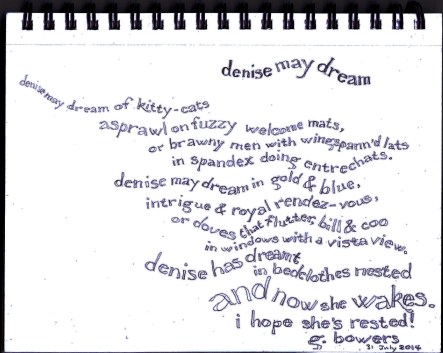 denise may dream
denise may dream of kitty-cats
asprawl on fuzzy welcome mats,
or brawny men with wingspann'd lats
in spandex doing entrechats.
denise may dream in gold & blue,
intrigue & royal rendez-vous,
or doves that flutter, bill & coo
in windows with a vista view.
denise has dreamt,
in bedclothes nested
and now she wakes.
i hope she's rested!
g. bowers
31 July 2014